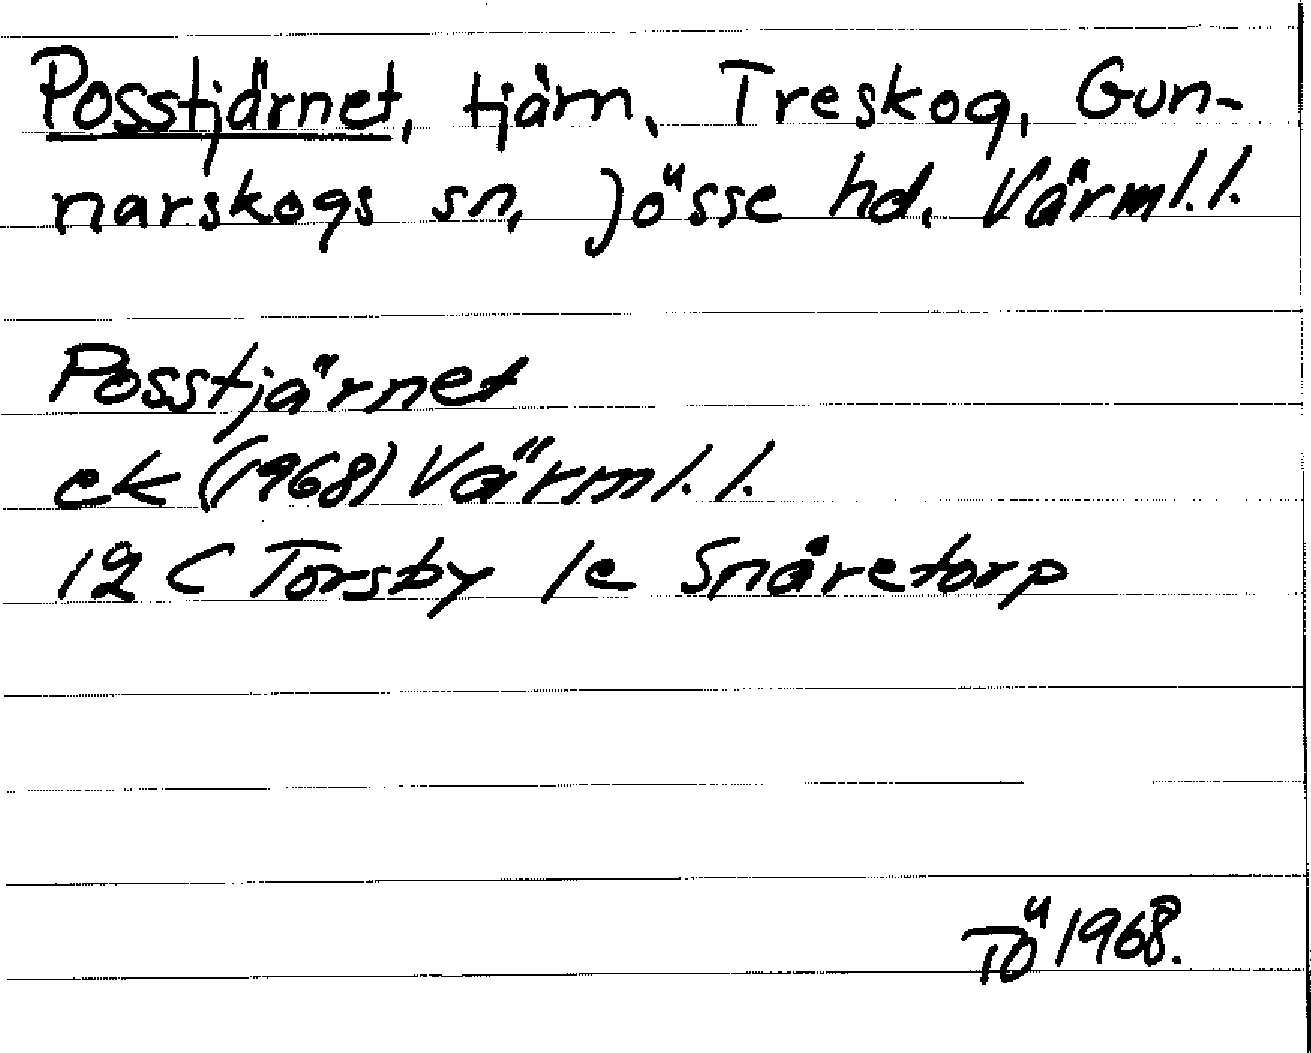 Posstjärnet, tjärn, Treskog, Gun-
narskogs sn, Jösse hd. Värml. l.
Posstjärnet
ek (1968) Värml. l.
12 C Torsby 1e Snåretorp
TÖ 1968.